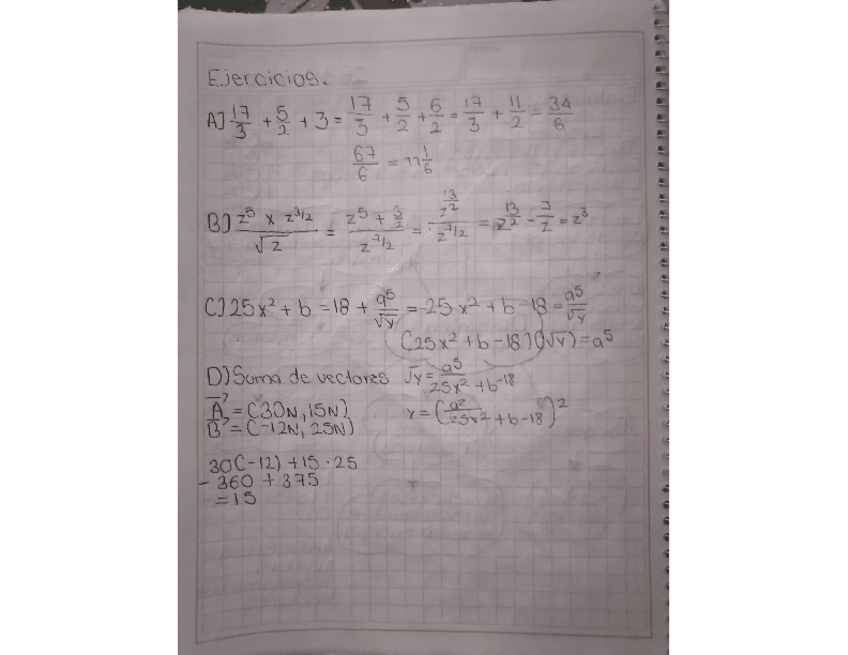 Ejercicios.
A) 17/3 + 5/2 + 3 = 17/3 + 5/2 + 6/2 = 17/3 + 11/2 = 34/6
67/6 = 11 1/6
B) z^5 x z^3/2 / √z = z^5 + 3/2 / z^7/2 = z^13/2 / z^7/2 = z^13/2 - 7/2 = z^3
C) 25x² + b = 18 + a^5/√y = 25x² + b - 18 = a^5/√y
(25x² + b - 18)(√y) = a^5
D) Suma de vectores √y = a^5 / 25x² + b^-18
A = (30N, 15N) y = (a² / 25x² + b - 18)²
B = (-12N, 25N)
30(-12) + 15 · 25
- 360 + 375
= 15